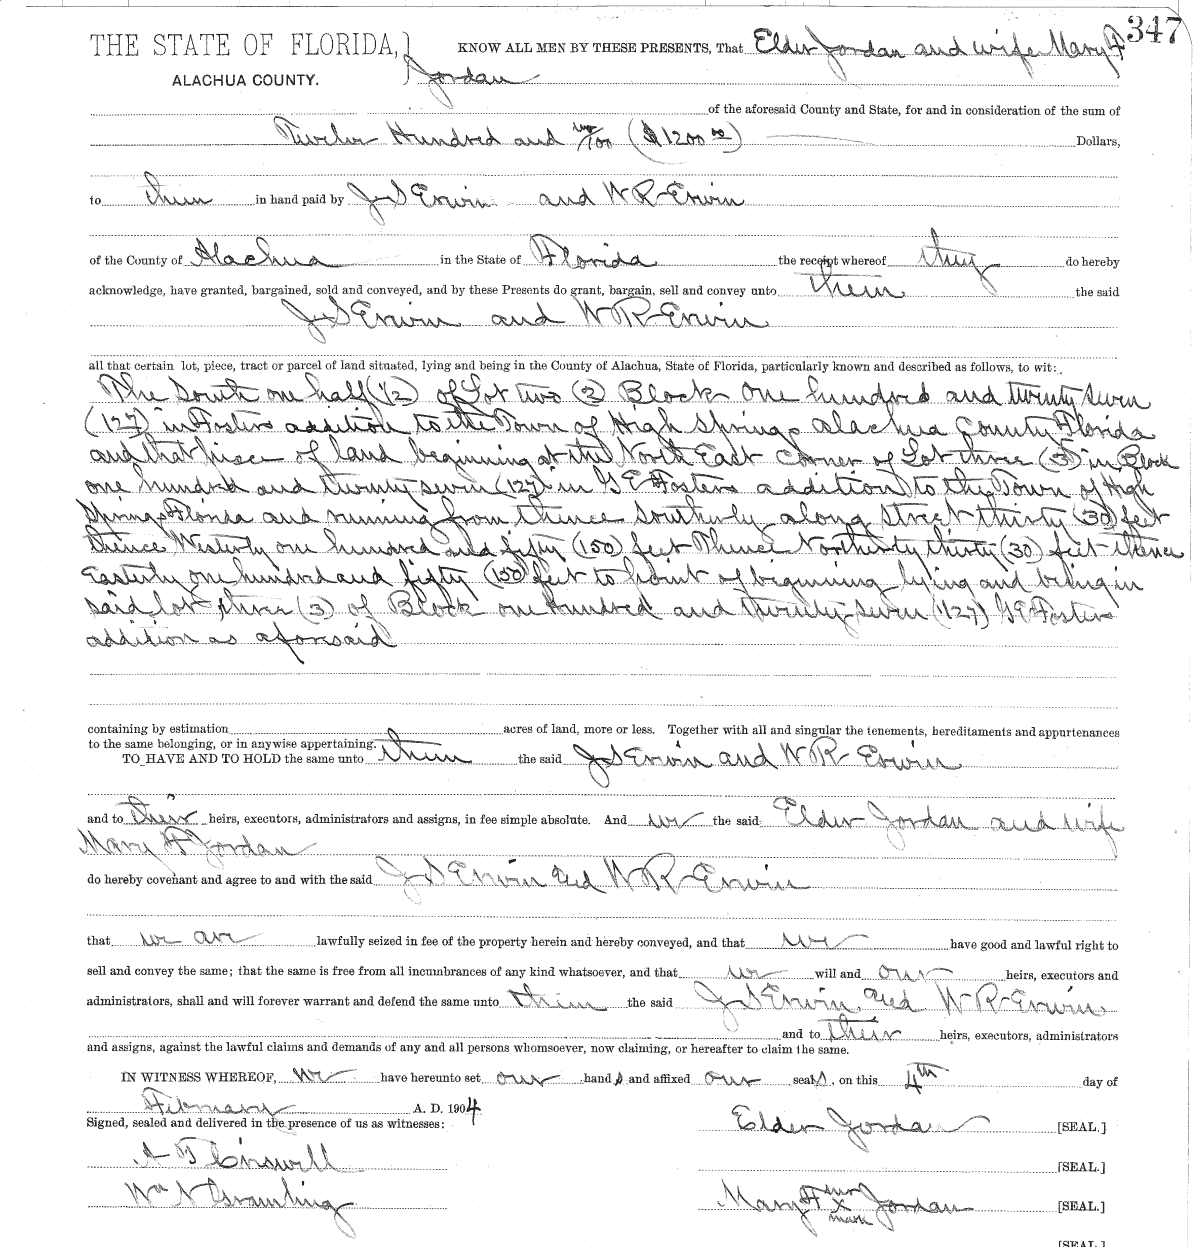 347
THE STATE OF FLORIDA,} KNOW ALL MEN BY THESE PRESENTS, That Elder Jordan and wife Mary F
ALACHUA COUNTY. Jordan
of the aforesaid County and State, for and in consideration of the sum of
Twelve Hundred and no/100 ($1200 00) Dollars,
to them in hand paid by J S Erwin and W R Erwin
of the County of Alachua in the State of Florida the receipt whereof they do hereby
acknowledge, have granted, bargained, sold and conveyed, and by these Presents do grant, bargain, sell and convey unto them the said
J S Erwin and W R Erwin
all that certain lot, piece, tract or parcel of land situated, lying and being in the County of Alachua, State of Florida, particularly known and described as follows, to wit:
The South one half (1/2) of Lot two (2) Block One hundred and twenty seven
(127) in Fosters addition to the Town of High Springs Alachua County Florida
and that piece of land beginning at the North East Corner of Lot three (3) in Block
one hundred and twenty seven (127) in G E Fosters addition to the Town of High
Springs Florida and running from thence Southerly along street thirty (30) feet
thence Westerly one hundred and fifty (150) feet thence Northerly thirty (30) feet thence
Easterly one hundred and fifty (150) feet to point of beginning lying and being in
said lot three (3) of Block one Hundred and twenty seven (127) G E Fosters
addition as aforesaid
containing by estimation acres of land, more or less. Together with all and singular the tenements, hereditaments and appurtenances
to the same belonging, or in anywise appertaining.
TO HAVE AND TO HOLD the same unto them the said J S Erwin and W R Erwin
and to their heirs, executors, administrators and assigns, in fee simple absolute. And we the said Elder Jordan and wife
Mary F Jordan
do hereby covenant and agree to and with the said J S Erwin and W R Erwin
that we are lawfully seized in fee of the property herein and hereby conveyed, and that we have good and lawful right to
sell and convey the same; that the same is free from all incumbrances of any kind whatsoever, and that we will and our heirs, executors and
administrators, shall and will forever warrant and defend the same unto them the said J S Erwin and W R Erwin
and to their heirs, executors, administrators
and assigns, against the lawful claims and demands of any and all persons whomsoever, now claiming, or hereafter to claim the same.
IN WITNESS WHEREOF, we have hereunto set our hands and affixed our seals, on this 4th day of
February A. D. 1904
Signed, sealed and delivered in the presence of us as witnesses: Elder Jordan [SEAL.]
A T [SEAL.]
Wm N Gramling Mary F her x mark Jordan [SEAL.]
[SEAL.]